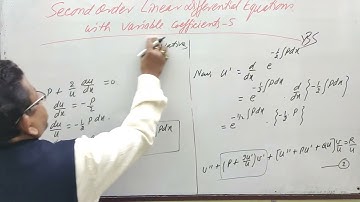 Second Order Linear differential Equations
with variable coefficient-S
BS
P + 2/u du/dx = 0
du/dx = -P/2
= -1/2 P dx
Now, u' = d/dx e^{-1/2∫Pdx}
= e^{-1/2∫Pdx} d/dx {-1/2∫Pdx}
= e^{-1/2∫Pdx} · {-1/2 · P}
v'' + (P + 2u'/u) v' + [u'' + Pu' + Qu] v/u = R/u
②